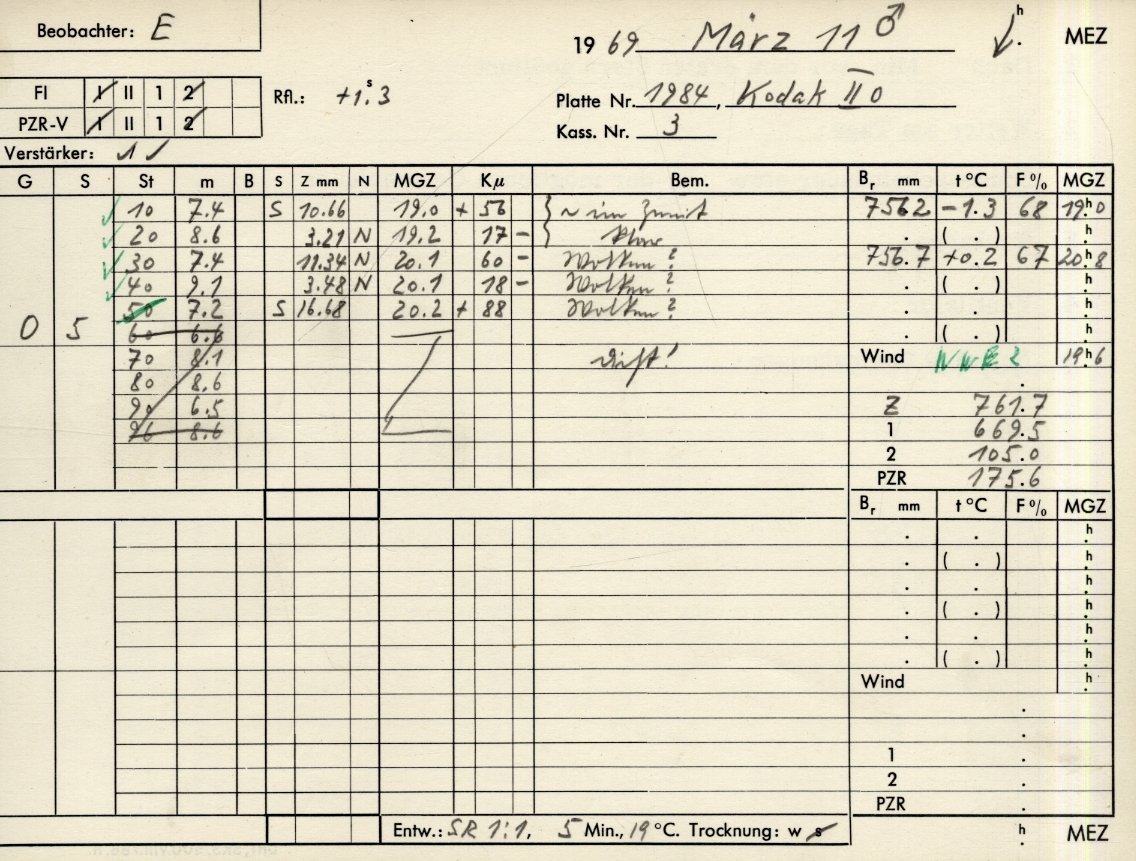 Beobachter: E
19 69 März 11 ♂ h . MEZ
FI I II 1 2
PZR-V I II 1 2
Rfl.: +1.s3
Platte Nr. 1984, Kodak II 0
Kass. Nr. 3
Verstärker: 1 ✓
G S St m B S Z mm N MGZ Kμ Bem. Br mm t °C F % MGZ
10 7.4 S 10.66 19.0 + 56 } ~ im Zenit 756.2 -1.3 68 19.h0
20 8.6 3.21 N 19.2 17 - klar . ( . ) h.
30 7.4 11.34 N 20.1 60 - Wolken? 756.7 +0.2 67 20.h8
40 9.1 3.48 N 20.1 18 - Wolken? . ( . ) h.
50 7.2 S 16.68 20.2 + 88 Wolken? . . h.
0 5 60 6.6 . ( . ) h.
70 8.1 Wind 19.h6
80 8.6 .
90 6.5 Z 761.7
96 8.6 1 669.5
2 105.0
PZR 175.6
Br mm t °C F % MGZ
. . h.
. ( . ) h.
. . h.
. ( . ) h.
. . h.
. ( . ) h.
Wind h.
.
.
1 .
2 .
PZR .
Entw.: SR 1:1, 5 Min., 19 °C. Trocknung: w s h . MEZ